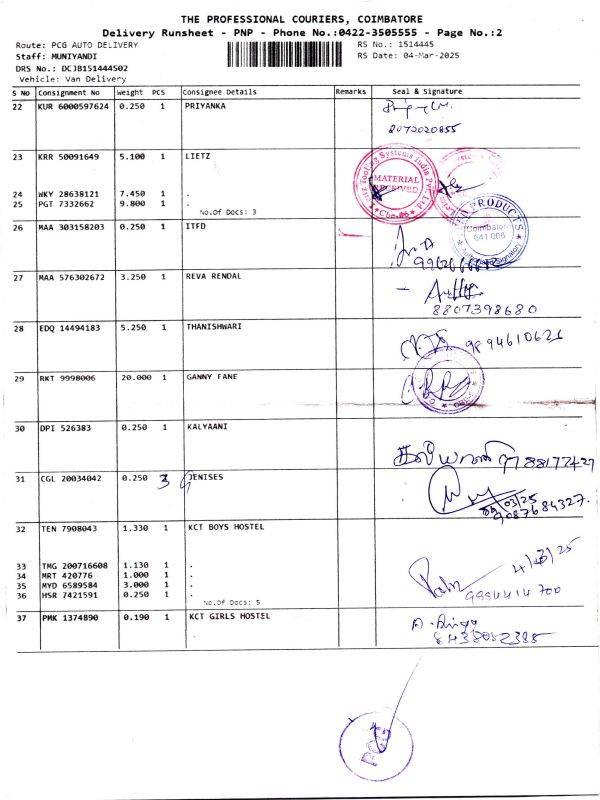 THE PROFESSIONAL COURIERS, COIMBATORE
Delivery Runsheet - PNP - Phone No.:0422-3505555 - Page No.:2
Route: PCG AUTO DELIVERY RS No.: 1514445
Staff: MUNIYANDI RS Date: 04-Mar-2025
DRS No.: DCJB151444502
Vehicle: Van Delivery
S No Consignment No Weight PCS Consignee Details Remarks Seal & Signature
22 KUR 6000597624 0.250 1 PRIYANKA
8072020855
23 KRR 50091649 5.100 1 LIETZ
MATERIAL
RECEIVED
24 WKY 28638121 7.450 1 .
25 PGT 7332662 9.800 1 .
No.Of Docs: 3
PRODUCTS
Coimbatore
641 006
26 MAA 303158203 0.250 1 ITFD
27 MAA 576302672 3.250 1 REVA RENDAL
8807398680
28 EDQ 14494183 5.250 1 THANISHWARI
9894610626
29 RKT 9998006 20.000 1 GANNY FANE
30 DPI 526383 0.250 1 KALYAANI
31 CGL 20034042 0.250 3 JENISES
9087684327.
32 TEN 7908043 1.330 1 KCT BOYS HOSTEL
33 TMG 200716608 1.130 1 .
34 MRT 420776 1.000 1 .
35 MYD 6589584 3.000 1 .
36 HSR 7421591 0.250 1 .
No.Of Docs: 5
9994414700
37 PMK 1374890 0.190 1 KCT GIRLS HOSTEL